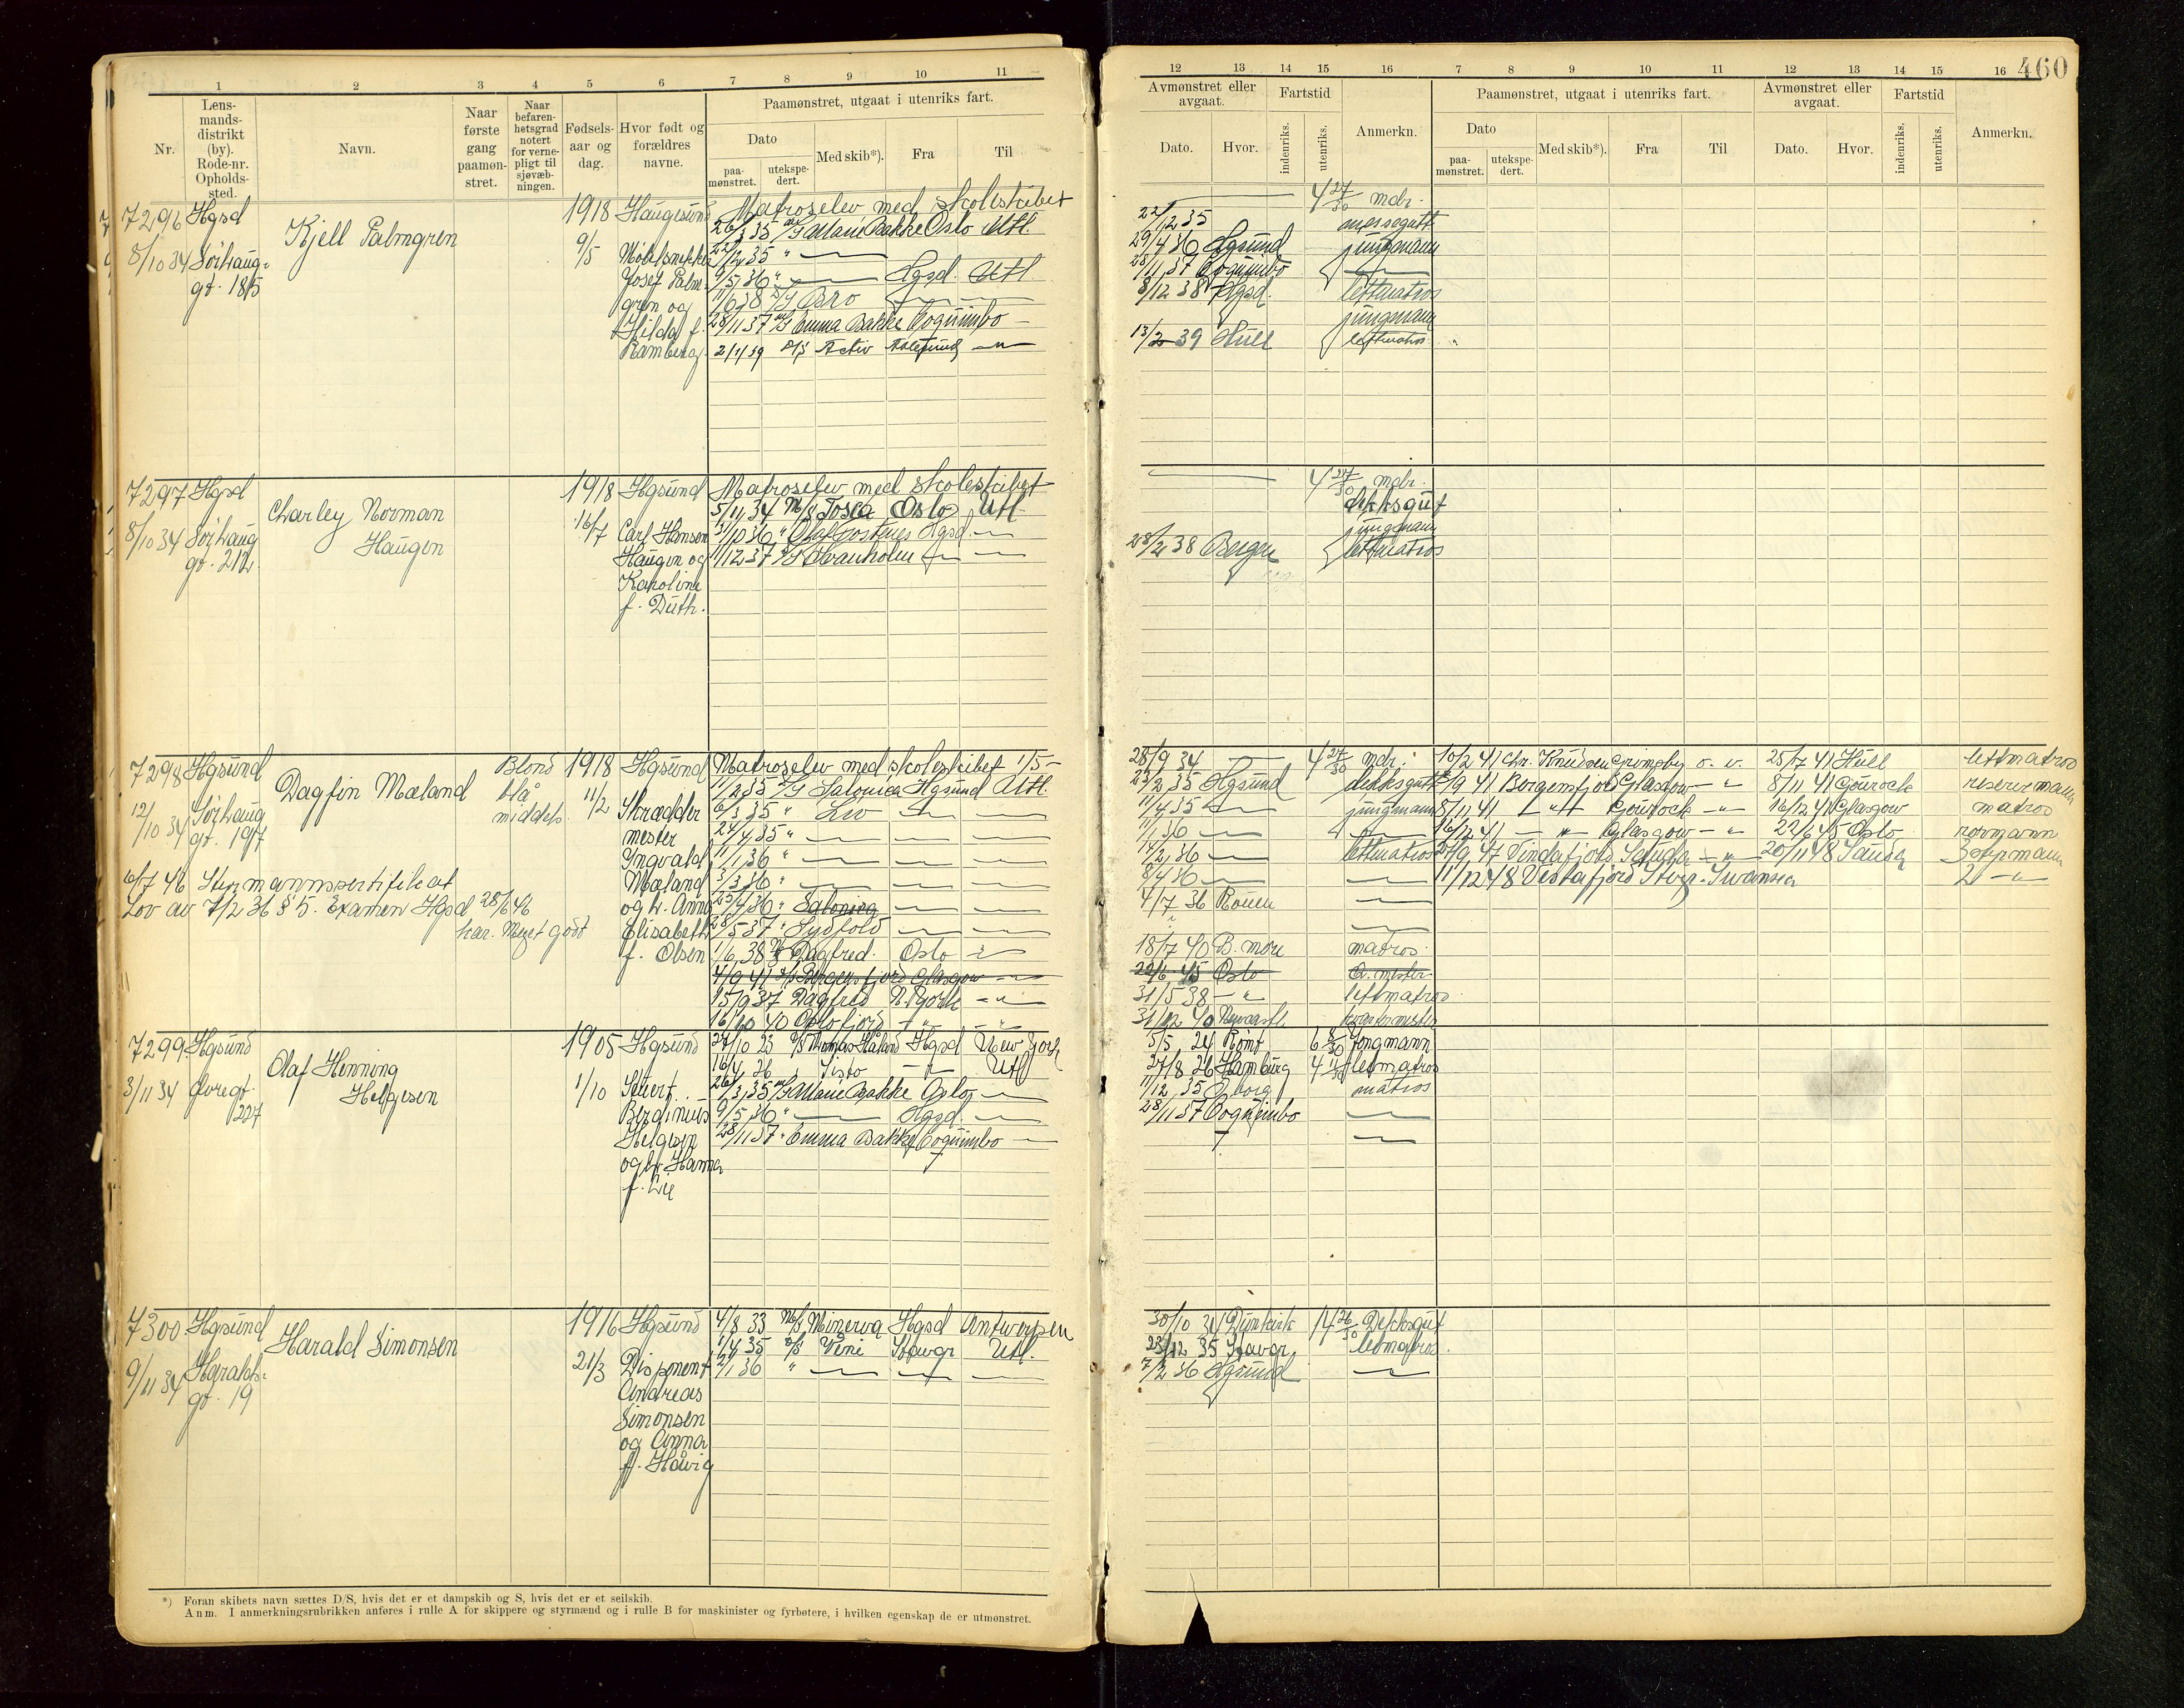 1 2 3 4 5 6 7 8 9 10 11
Nr.
Lens-
mands-
distrikt
(by).
Rode-nr.
Opholds-
sted.
Navn.
Naar
første
gang
paamøn-
stret.
Naar
befaren-
hetsgrad
notert
for verne-
pligt til
sjøvæb-
ningen.
Fødsels-
aar og
dag.
Hvor født og
forældres
navne.
Paamønstret, utgaat i utenriks fart.
Dato
paa-
mønstret.
utekspe-
dert.
Med skib*).
Fra
Til
12 13 14 15 16 7 8 9 10 11 12 13 14 15 16
460
Avmønstret eller
avgaat.
Dato.
Hvor.
Fartstid
indenriks.
utenriks.
Anmerkn.
Paamønstret, utgaat i utenriks fart.
Dato
paa-
mønstret.
utekspe-
dert.
Med skib*).
Fra
Til
Avmønstret eller
avgaat.
Dato.
Hvor.
Fartstid
indenriks.
utenriks.
Anmerkn.
7296 Hgsd
8/10 34 Sørhaug-
gt. 185
Kjell Palmgren
1918
9/5
Haugesund
Møbelsnekker
Josef Palm-
gren og
Hilda f.
Ramberg
Matroselev med skoleskibet
26/3 35 M/T Marie Bakke Oslo Utl.
22/12 35 " —
9/5 36 " — Hgsd. Utl
11/6 38 Bro —
28/11 37 Emma Bakke Coquimbo —
2/1 39 D/S Activ —"—
— 4 27/30 mdr.
22/12 35 messegutt
29/4 36 Hgsund jungmann
28/11 37 Coquimbo —
8/12 38 Hgsd. lettmatros
jungmann
13/2 39 Hull lettmatros
7297 Hgsd
8/10 34 Sørhaug
gt. 212.
Charley Norman
Haugen
1918
16/7
Hgsund
Carl Hansen
Haugen og
Karoline
f. Duth.
Matroselev med skoleskibet
5/11 34 M/S Tosca Oslo Utl
31/10 36 " Hgsd. —
11/12 37 Svanholm — —
— 4 27/30 mdr.
dekksgut
jungmann
28/2 38 Bergen lettmatros
7298 Hgsund
12/10 34 Sørhaug
gt. 197
Dagfin Mæland
Blond
blå
middels
1918
11/2
Hgsund
Skrædder
mester
Yngvald
Mæland
og h. Anna
Elisabeth
f. Olsen
6/7 46 Styrmannssertifikat
Lov av 7/2 36 § 5. Examen Hgsd 28/6 46
kar. Meget godt
Matroselev med skoleskibet 1/5 –
11/2 35 Salonica Hgsund Utl.
6/3 35 " Liv — —
24/4 35 " — — —
11/1 36 " — — —
3/3 36 " — — —
23/4 36 " Salonica — —
28/5 37 " Sydfold — —
1/6 38 Dagfred. Oslo —
4/9 41 Bergensfjord Glasgow —
15/9 37 Dagfred N. York —"—
16/10 40 Oslofjord —"— —"—
28/9 34 — 4 27/30 mdr.
23/2 35 Hgsund dekksgutt
11/4 35 — jungmann
11/1 36 — —
14/2 36 — lettmatros
8/4 36 — —
4/7 36 Rouen —
—
18/7 40 B. more matros.
22/6 45 Oslo
31/5 38 — " lettmatros
31/12 40 Newcastle kvartermester
10/2 41 Chr. Knudsen Grimsby o. v. 25/7 41 Hull lettmatros
5/9 41 Bergensfjord Glasgow — " 8/11 41 Gourock reservemann
8/11 41 — " — Gourock — " 16/12 41 Glasgow matros
16/12 41 — " — Glasgow — " 22/6 45 Oslo rormann
27/9 47 Vindafjord Sauda — " 20/11 48 Sauda 3 styrmann
11/12 48 Vestafjord Stvgr. Swansea 2 — "
7299 Hgsund
3/11 34 Øvregt.
227
Olaf Henning
Helgesen
1905
1/10
Hgsund
Sivert
Berdinius
Helgesen
og h. Hanna
f. Lie
27/10 23 S/S Thomas Haaland Hgsd New York
16/4 26 " Sisto — Utl
26/3 35 M/T Marie Bakke Oslo —
9/5 36 " — Hgsd. —
28/11 37 " Emma Bakke Coquimbo —
5/5 24 6 8/30 Jongmann
27/8 26 Hamburg letmatros
11/12 35 matros
28/11 37 Coquimbo —
—
7300 Hgsund
9/11 34 Haralds-
gt. 19
Harald Simonsen
1916
21/3
Hgsund
Disponent
Andreas
Simonsen
og Anna
f. Håvig
4/8 33 M/S Minerva Hgsd Antwerpen
1/4 35 D/S Veni Stavgr Utl.
2/1 36 " — — —
30/10 34 Dunkirk 14 26/30 Dekksgut
23/12 35 Stavgr. letmatros.
7/2 36 Hgsund —
*) Foran skibets navn sættes D/S, hvis det er et dampskib og S, hvis det er et seilskib.
Anm. I anmerkningsrubrikken anføres i rulle A for skippere og styrmænd og i rulle B for maskinister og fyrbøtere, i hvilken egenskap de er utmønstret.